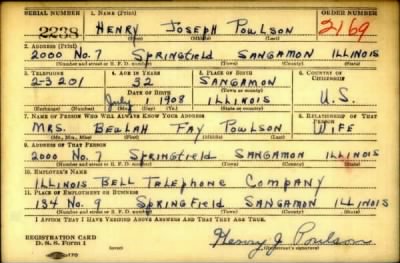 SERIAL NUMBER 1. NAME (Print) ORDER NUMBER
2238 HENRY JOSEPH POULSON 2169
(First) (Middle) (Last)
2. ADDRESS (Print)
2000 No. 7 SPRINGFIELD SANGAMON ILLINOIS
(Number and street or R. F. D. number) (Town) (County) (State)
3. TELEPHONE 4. AGE IN YEARS 5. PLACE OF BIRTH 6. COUNTRY OF CITIZENSHIP
2-3201 32 SANGAMON
DATE OF BIRTH (Town or county)
July 1908 ILLINOIS U.S.
(Exchange) (Number) (Mo.) (Day) (Yr.) (State or country)
7. NAME OF PERSON WHO WILL ALWAYS KNOW YOUR ADDRESS 8. RELATIONSHIP OF THAT PERSON
MRS. BEULAH FAY POULSON WIFE
(Mr., Mrs., Miss) (First) (Middle) (Last)
9. ADDRESS OF THAT PERSON
2000 No. 7 SPRINGFIELD SANGAMON ILLINOIS
(Number and street or R. F. D. number) (Town) (County) (State)
10. EMPLOYER'S NAME
ILLINOIS BELL TELEPHONE COMPANY
11. PLACE OF EMPLOYMENT OR BUSINESS
134 No. 9 SPRINGFIELD SANGAMON ILLINOIS
(Number and street or R. F. D. number) (Town) (County) (State)
I AFFIRM THAT I HAVE VERIFIED ABOVE ANSWERS AND THAT THEY ARE TRUE.
REGISTRATION CARD
D. S. S. Form 1
Henry J Poulson
(Registrant's signature)